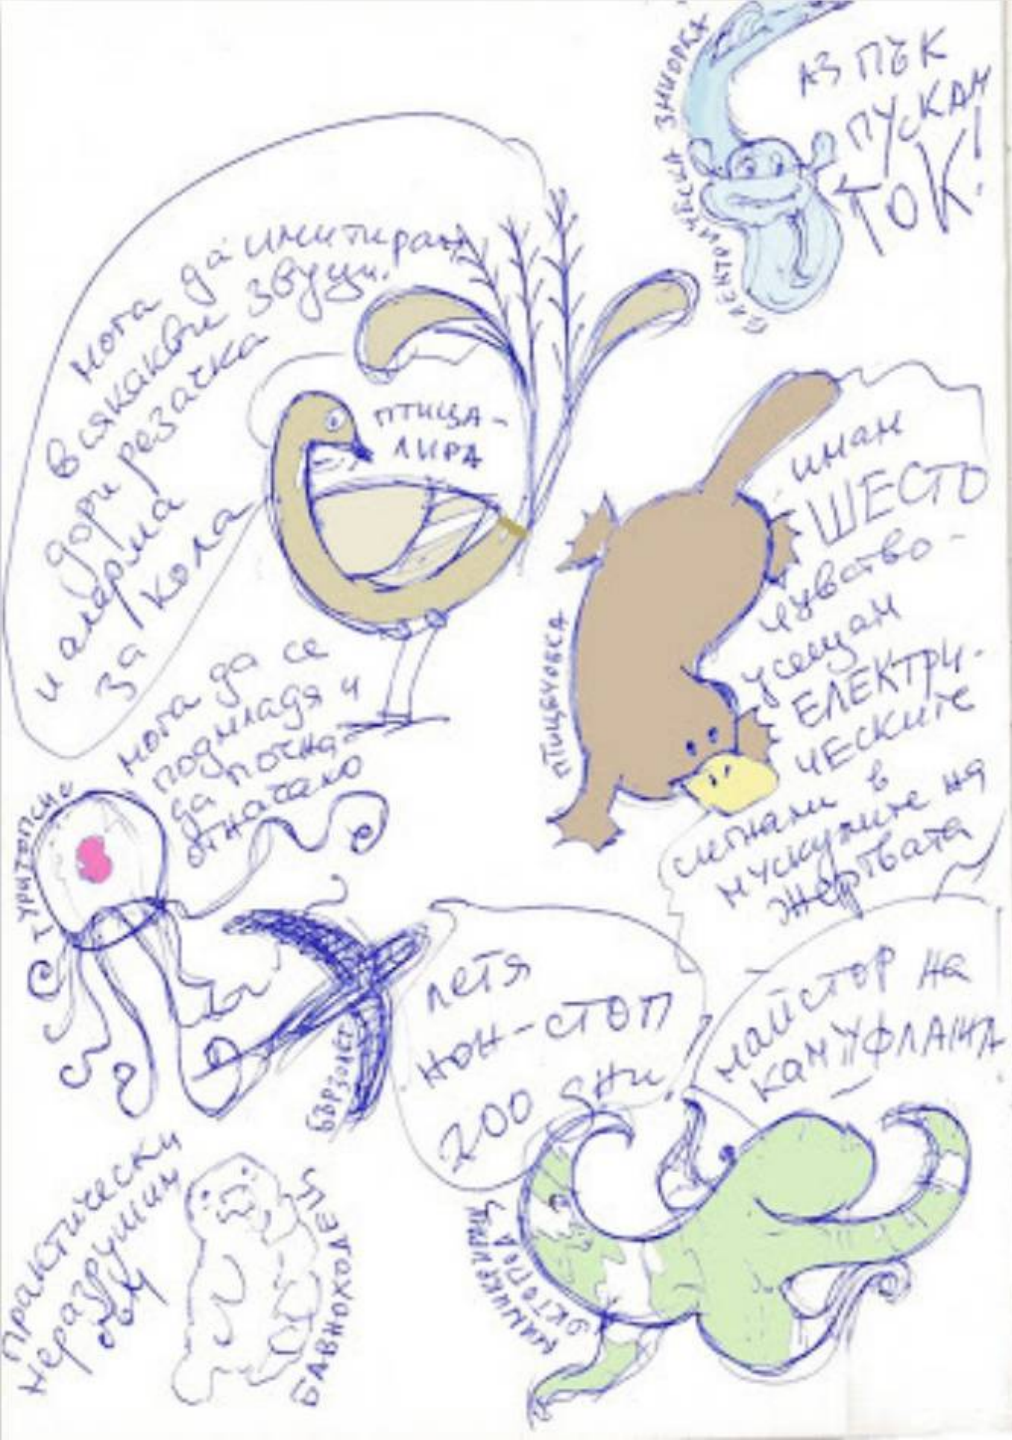 ЕЛЕКТРИЧЕСКА ЗМИОРКА
АЗ ПЪК
ПУСКАМ
ТОК!
мога да имитирам
всякакви звуци.
дори резачка
и аларма
за кола
ПТИЦА-
ЛИРА
имам
ШЕСТО
чувство-
усещам
ЕЛЕКТРИ-
ЧЕСКИТЕ
сигнали в
мускулите на
жертвата
ПТИЦЕЧОВКА
мога да се
подмладя и
да почна
отначало
ТУРИТОПСИС
ЛЕТЯ
НОН-СТОП
200 дни
БЪРЗОЛЕТ
майстор на
КАМУФЛАЖА
МИМИКИРАЩ
ОКТОПОД
ПРАКТИЧЕСКИ
неразрушим
съм
БАВНОХОДЕЦ